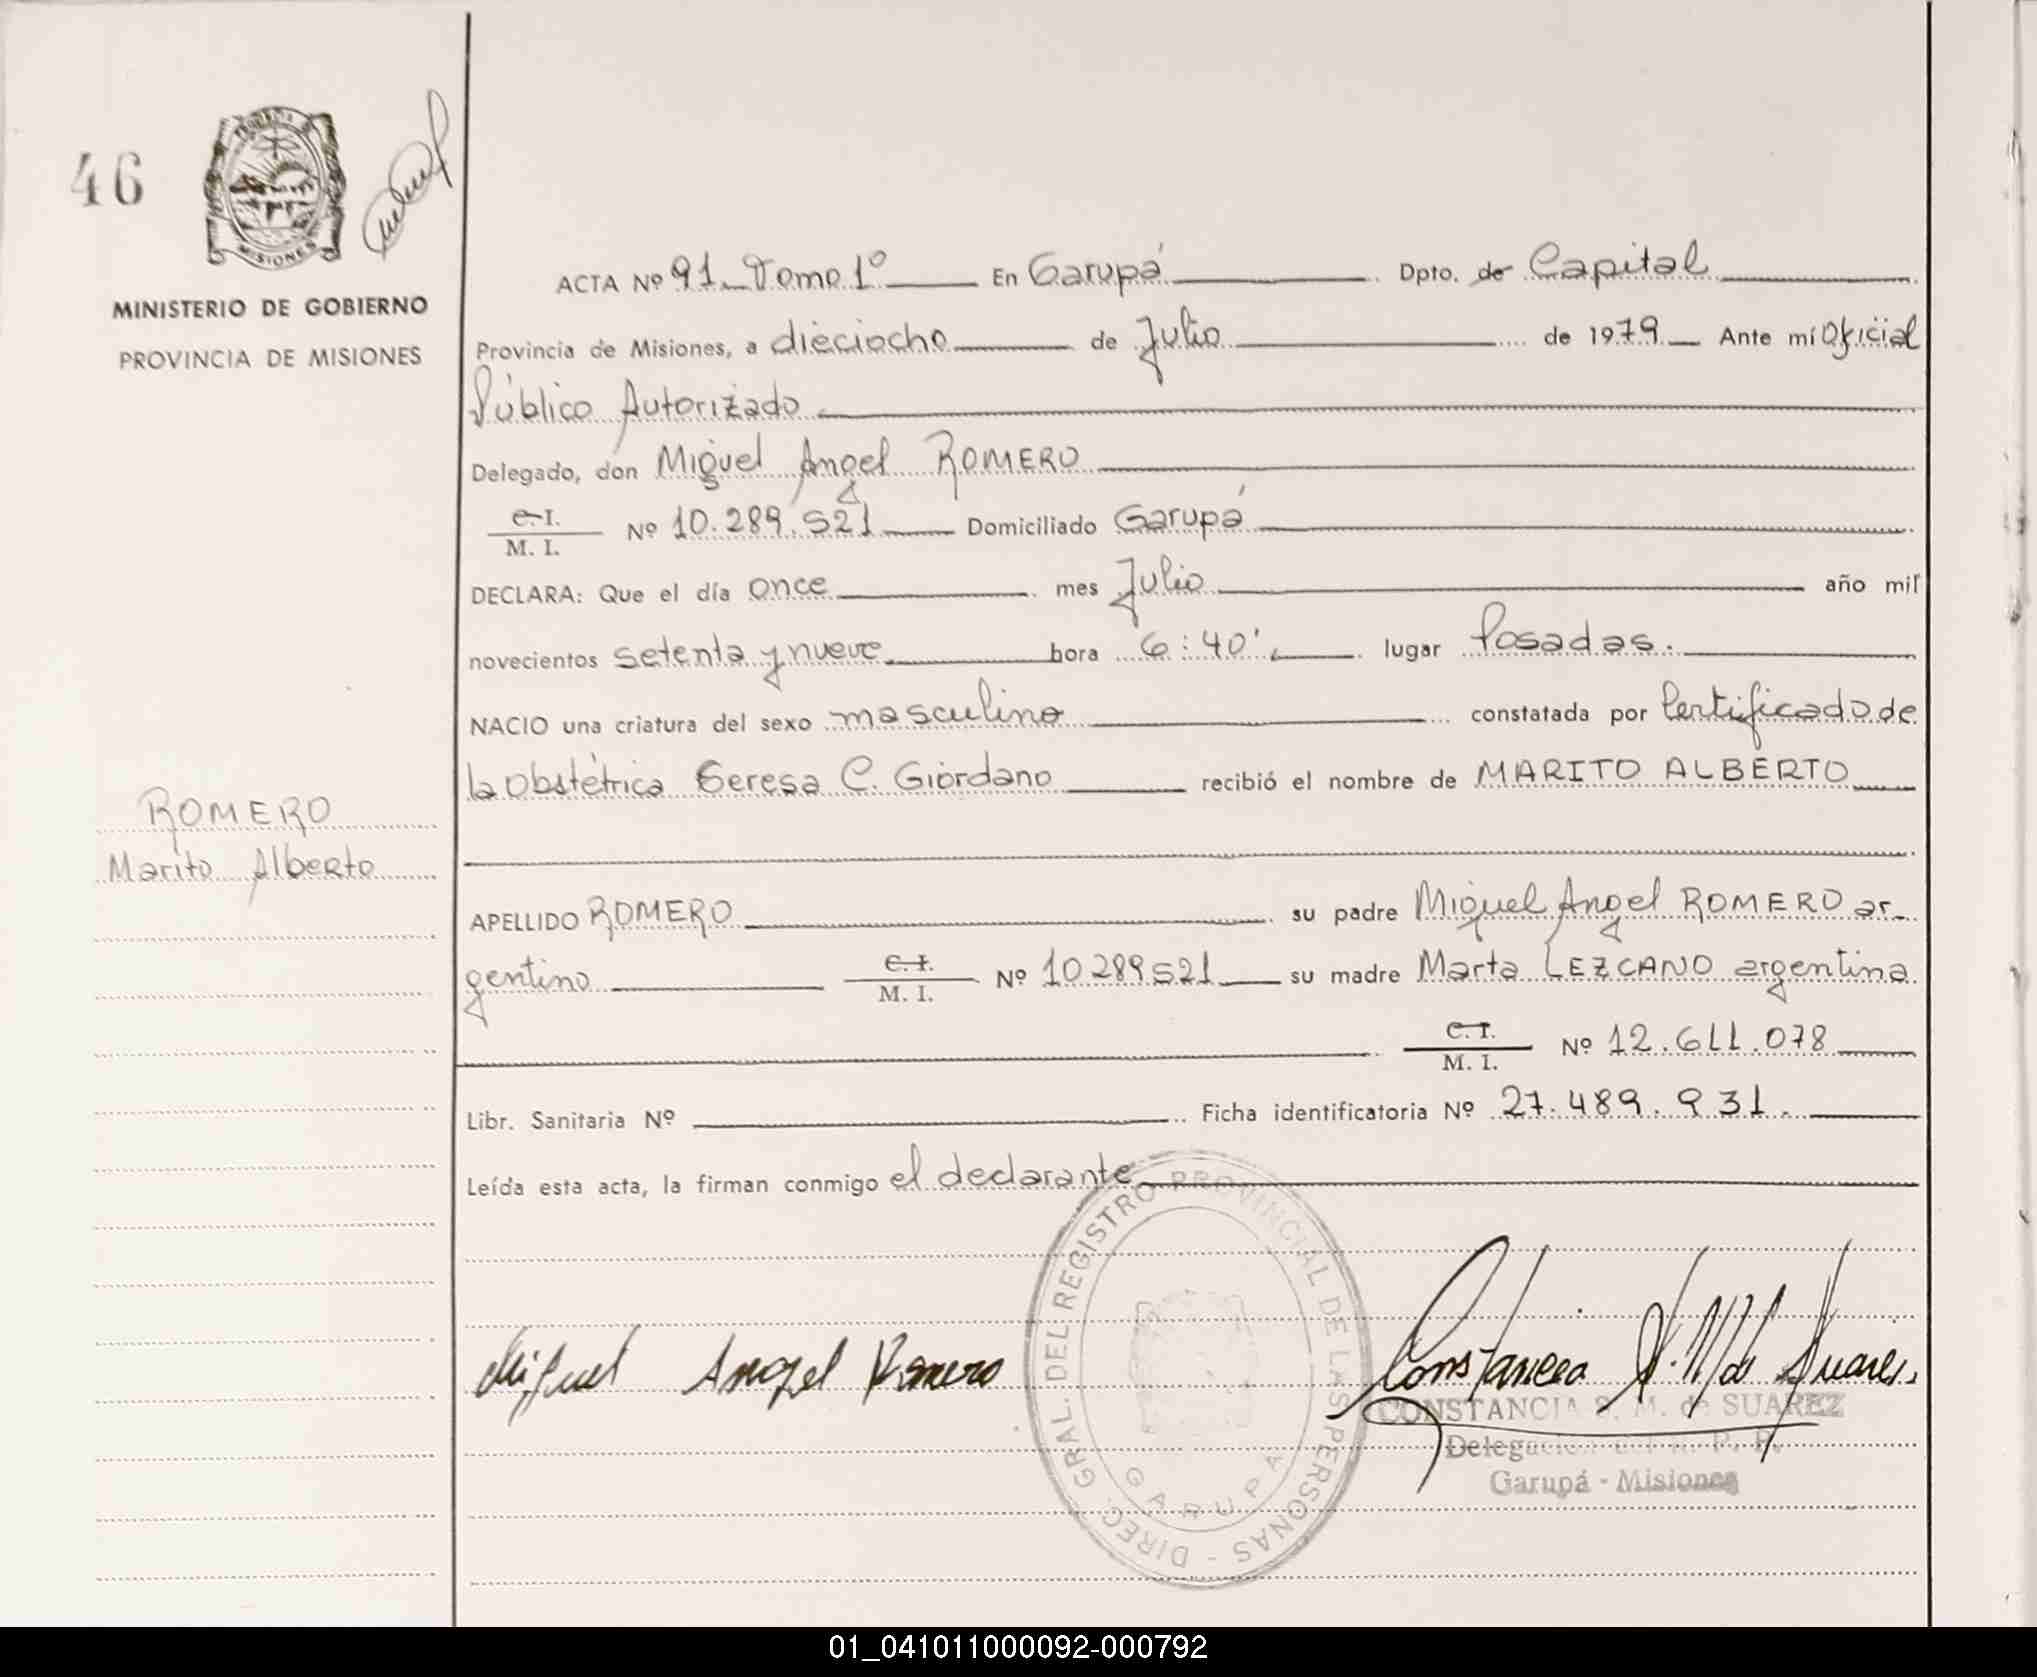 46
PROVINCIA DE
MISIONES
MINISTERIO DE GOBIERNO
PROVINCIA DE MISIONES
ROMERO
Marito Alberto
ACTA Nº 91 Tomo 1º En Garupá Dpto. de Capital
Provincia de Misiones, a dieciocho de Julio de 1979 Ante mí Oficial
Público Autorizado
Delegado, don Miguel Angel ROMERO
C. I.
M. I. Nº 10.289.521 Domiciliado Garupá
DECLARA: Que el día once mes Julio año mil
novecientos setenta y nueve hora 6:40' lugar Posadas.
NACIO una criatura del sexo masculino constatada por Certificado de
la Obstétrica Teresa C. Giordano recibió el nombre de MARITO ALBERTO
APELLIDO ROMERO su padre Miguel Angel ROMERO ar-
gentino C. I. M. I. Nº 10289521 su madre Marta LEZCANO argentina
C. I.
M. I. Nº 12.611.078
Libr. Sanitaria Nº Ficha identificatoria Nº 27.489.931.
Leída esta acta, la firman conmigo el declarante
DIREC. GRAL. DEL REGISTRO PROVINCIAL DE LAS PERSONAS -
GARUPA
Miguel Angel Romero
Constancia S. M. de Suarez
CONSTANCIA S. M. de SUAREZ
Delegación del R. P. P.
Garupá - Misiones
01_041011000092-000792